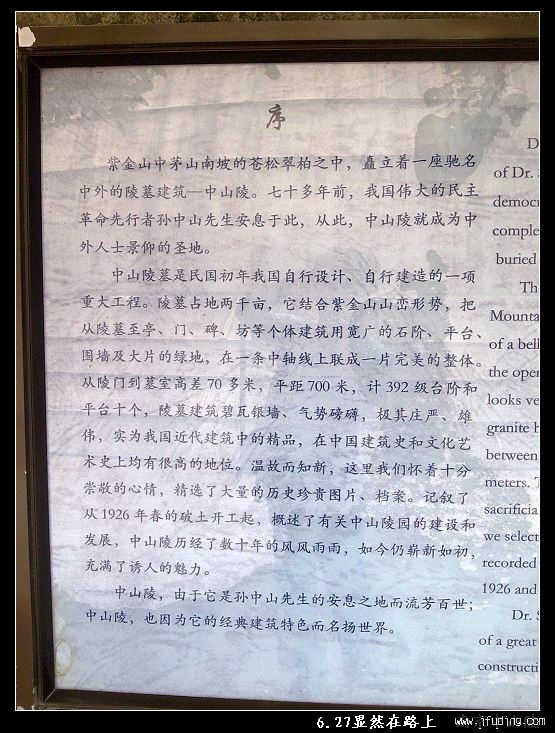 序
紫金山中茅山南坡的苍松翠柏之中，矗立着一座驰名
中外的陵墓建筑—中山陵。七十多年前，我国伟大的民主
革命先行者孙中山先生安息于此，从此，中山陵就成为中
外人士景仰的圣地。
中山陵墓是民国初年我国自行设计、自行建造的一项
重大工程。陵墓占地两千亩，它结合紫金山山峦形势，把
从陵墓至亭、门、碑、坊等个体建筑用宽广的石阶、平台、
围墙及大片的绿地，在一条中轴线上联成一片完美的整体。
从陵门到墓室高差70多米，平距700米，计392级台阶和
平台十个，陵墓建筑碧瓦银墙、气势磅礴，极其庄严、雄
伟，实为我国近代建筑中的精品，在中国建筑史和文化艺
术史上均有很高的地位。温故而知新，这里我们怀着十分
崇敬的心情，精选了大量的历史珍贵图片、档案。记叙了
从1926年春的破土开工起，概述了有关中山陵园的建设和
发展，中山陵历经了数十年的风风雨雨，如今仍崭新如初，
充满了诱人的魅力。
中山陵，由于它是孙中山先生的安息之地而流芳百世；
中山陵，也因为它的经典建筑特色而名扬世界。
D
of Dr. S
democr
comple
buried
Th
Mounta
of a bell
the oper
looks ve
granite h
between
meters. T
sacrificia
we select
recorded
1926 and
Dr. S
of a great
constructi
6.27显然在路上
www.jfuding.com